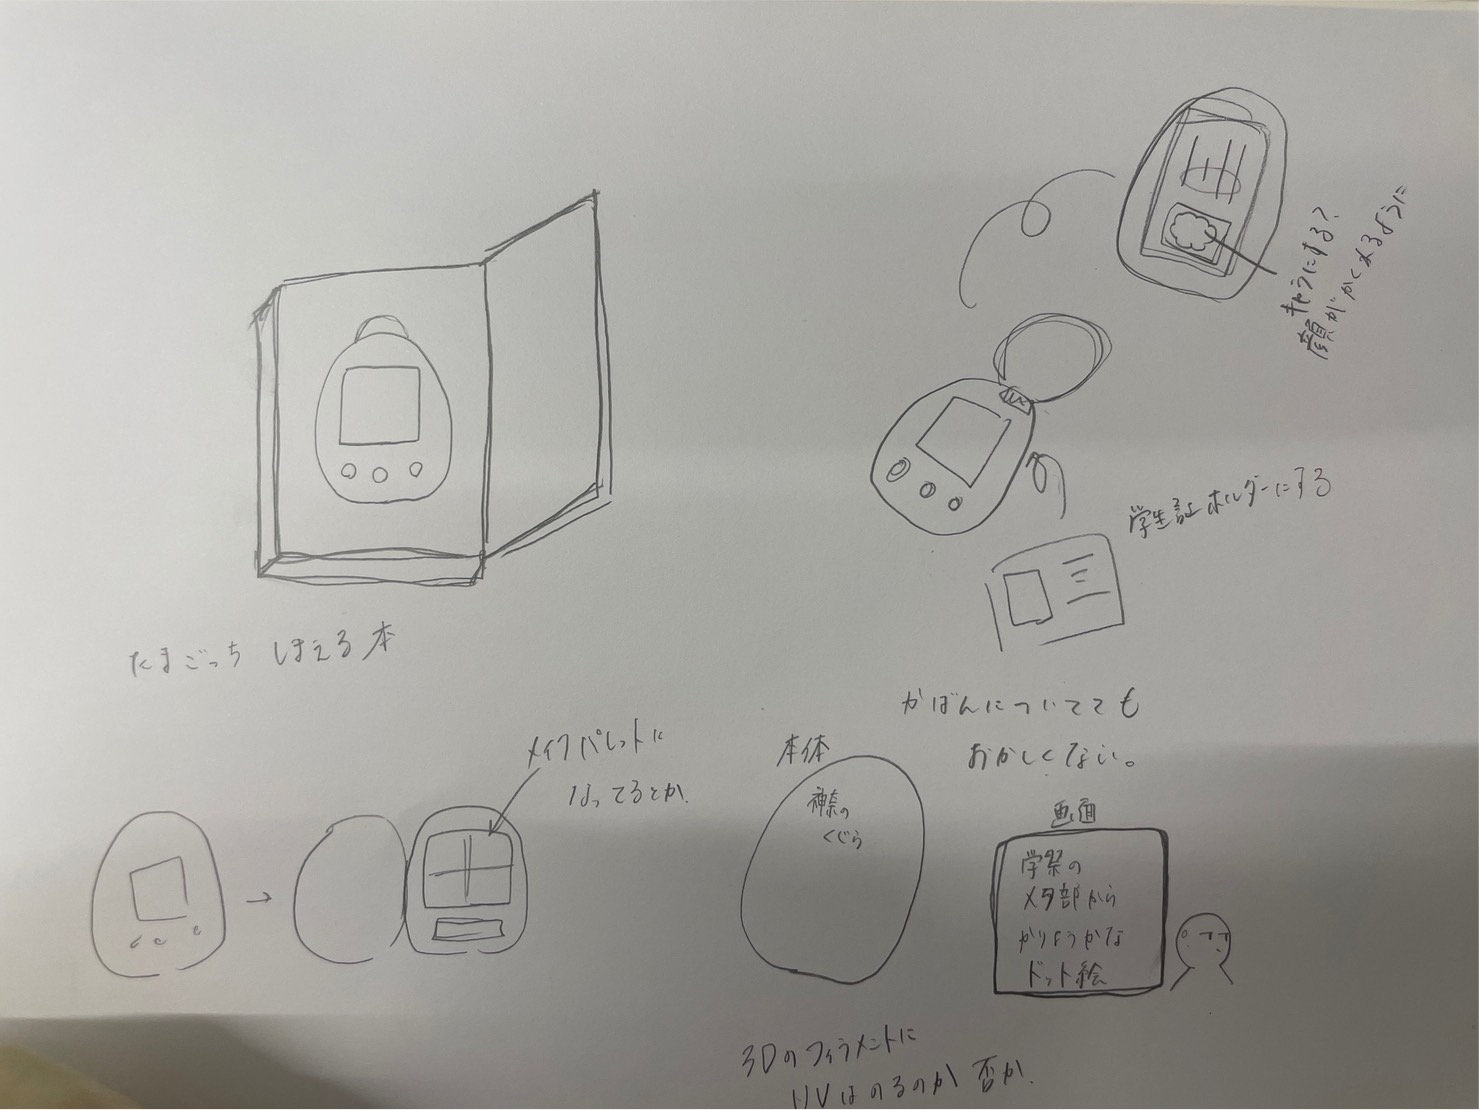 キャラにする?
顔がかくれるように
学生証ホルダーにする
たまごっち しまえる本
かばんについてても
おかしくない。
メイクパレットに
なってるとか
本体
神奈の
くじら
画面
学祭の
メタ部から
かりようかな
ドット絵
3Dのフィラメントに
UVはのるのか 否か.